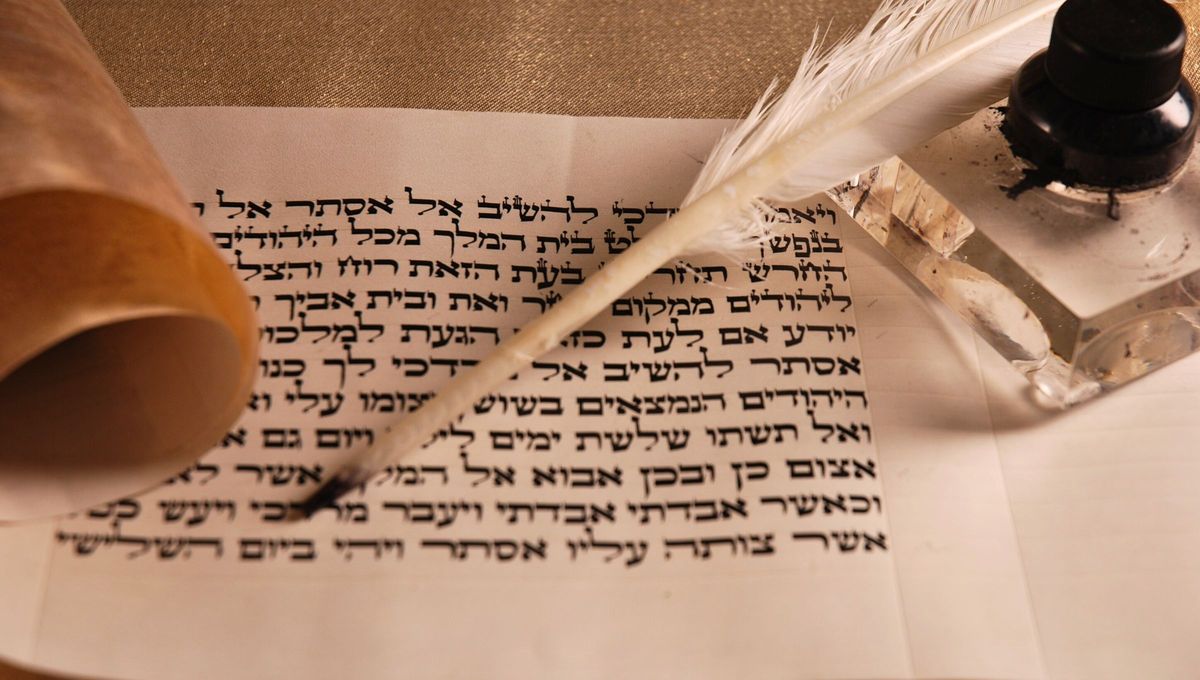 להשיב אל אסתר אל
בית המלך מכל היהודים
החרש בעת הזאת רוח
ליהודים ממקום ואת ובית אביך
יודע אם לעת הגעת
אסתר להשיב אל מרדכי לך
היהודים הנמצאים בשושן וצומו עלי
ואל תשתו שלשת ימים לילה ויום גם
אצום כן ובכן אבוא אל המלך אשר לא
וכאשר אבדתי אבדתי ויעבר מרדכי ויעש
אשר צותה עליו אסתר ויהי ביום השלישי